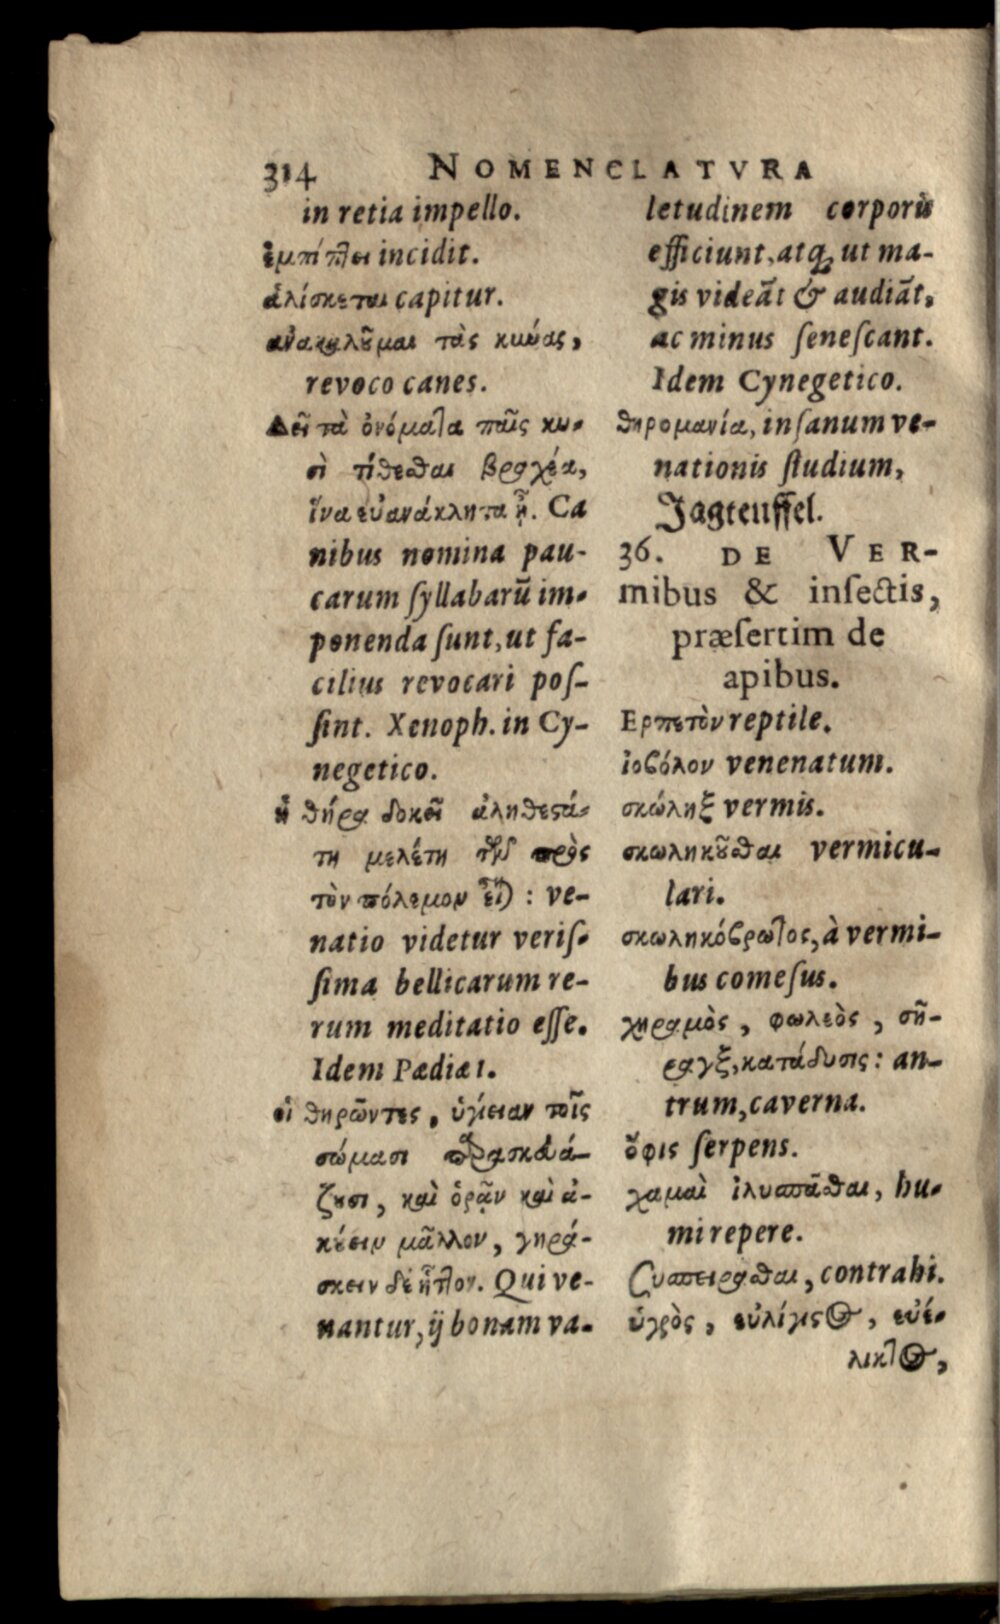 314 NOMENCLATVRA
in retia impello.
ἐμπίπτει incidit.
ἁλίσκεται capitur.
ἀνακαλοῦμαι τὰς κύνας,
revoco canes.
Δεῖ τὰ ὀνόματα ταῖς κυ-
σὶ τίθεσθαι βραχέα,
ἵνα εὐανάκλητα ᾖ. Ca
nibus nomina pau-
carum ſyllabarũ im-
ponenda ſunt, ut fa-
cilius revocari poſ-
ſint. Xenoph. in Cy-
negetico.
ἡ θήρα δοκεῖ ἀληθεστά-
τη μελέτη τῶν πρὸς
τὸν πόλεμον εἶναι: ve-
natio videtur veriſ-
ſima bellicarum re-
rum meditatio eſſe.
Idem Pædiæ 1.
οἱ θηρῶντες, ὑγίειαν τοῖς
σώμασι παρασκευά-
ζουσι, καὶ ὁρᾷν καὶ ἀ-
κούειν μᾶλλον, γηρά-
σκειν δὲ ἧττον. Qui ve-
nantur, ij bonam va-
letudinem corporis
efficiunt, atq; ut ma-
gis videãt & audiãt,
ac minus ſeneſcant.
Idem Cynegetico.
θηρομανία, inſanum ve-
nationis ſtudium,
Jagteuffel.
36. DE VER-
mibus & inſectis,
præſertim de
apibus.
Ερπετὸν reptile.
ἰοβόλον venenatum.
σκώληξ vermis.
σκωληκοῦσθαι vermicu-
lari.
σκωληκόβρωτος, à vermi-
bus comeſus.
χηραμὸς, φωλεὸς, σῆ-
ραγξ, κατάδυσις: an-
trum, caverna.
ὄφις ſerpens.
χαμαὶ ἰλυσπᾶσθαι, hu-
mi repere.
Συσπειρᾶσθαι, contrahi.
ὑγρὸς, εὐλίγιστος, εὐέ-
λικτος,